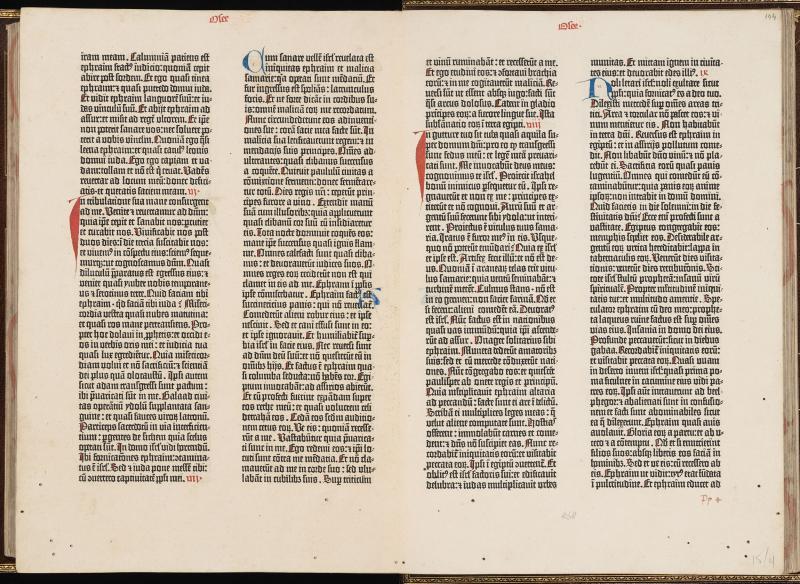 Osee
iram meam. Calumniā patiens est
ephraim fract⁹ iudicio: quoniā cepit
abire post sordem. Et ego quasi tinea
ephraim: ⁊ quasi putredo domui iuda.
Et vidit ephraim languorē suū: et iu-
das vinculū suū. Et abijt ephraim ad
assur: et misit ad regē ultorem. Et ip̄e
non poterit sanare vos: nec soluere po-
terit a vobis vinculū. Quoniā ego q̄si
leena ephraim: et quasi catul⁹ leonis
domui iuda. Ego ego capiam et va-
dam: tollam et nō est q̄ eruat. Vadēs
reuertar ad locum meū: donec defici-
atis et queratis faciem meam. vi
In tribulatione sua mane consurgent
ad me. Venite ⁊ reuertamur ad dn̄m:
quia ip̄e cepit et sanabit nos: percutiet
et curabit nos. Viuificabit nos post
duos dies: ī die tercia suscitabit nos:
et viuem⁹ in cōspectu eius: sciem⁹ seque-
murq; ut cognoscamus dn̄m. Quasi
diluculū p̄paratus est egressus eius: ⁊
veniet quasi ymber nobis temporane-
us ⁊ serotinus terre. Quid faciam tibi
ephraim: qd faciā tibi iuda? Miseri-
cordia vestra quasi nubes matutina:
et quasi ros mane pertransiens. Prop-
ter hoc dolaui in ꝓphetis: et occidi e-
os in verbis oris mei: et iudicia tua
quasi lux egredient̄. Quia misericor-
diam volui et nō sacrificiū: ⁊ scientiā
dei plus quā holocausta. Ipsi autem
sicut adam transgressi sunt pactum:
ibi p̄uaricati sūt in me. Galaad ciui-
tas operātiū ydolū: supplantata san-
guine: et quasi fauces viroꝝ latronū.
Particeps sacerdotū in via interficien-
tium pergentes de sichem: quia scelus
operati sūt. In domo isr̄l vidi horrendū.
Ibi fornicationes ephraim: cōtamina-
tus ē isr̄l. Sed ⁊ iuda pone messē tibi:
cū ꝯuertero captiuitatē ppl̄i mei. vii
Cum sanare vellē isr̄l reuelata est
iniquitas ephraim et malicia
samarie: q̄a operati sunt mēdaciū. Et
fur ingressus est spolians: latrunculus
foris. Et ne forte dicāt in cordibus su-
is: omnē maliciā eoꝝ me recordatum.
Nunc circūdederunt eos adinuenti-
ones sue: corā facie mea facte sūt. In
malicia sua letificauerunt regem: ⁊ in
mendacijs suis principes. Om̄es ad-
ulterantes: quasi clibanus succensus
a coquēte. Quieuit paululū ciuitas a
cōmixtione fermenti: donec fermētare-
tur totū. Dies regis nr̄i: ceperūt prin-
cipes furere a vino. Extendit manū
suā cum illusoribus: quia applicuerunt
quasi clibanū cor suū cū insidiaret̄
eis. Tota nocte dormiuit coquēs eos:
mane ip̄e succensus quasi ignis flam-
me. Om̄es calefacti sunt quasi cliba-
nus: et deuorauerūt iudices suos. O-
mnes reges eoꝝ ceciderūt: non est qui
clamet in eis ad me. Ephraim ī pplis
ipse cōmiscebatur. Ephraim fact⁹ est
subcinericius panis: qui nō reuersat̄.
Comederūt alieni robur eius: et ipse
nesciuit. Sed et cani effusi sunt in eo:
et ipse ignorauit. Et humiliabit̄ sup-
bia isr̄l in facie eius. Nec reuersi sunt
ad dn̄m deū suū: et nō quesierūt eū in
omnibꝫ hijs. Et factus ē ephraim qua-
si columba seducta: nō habēs cor. Egi-
ptum inuocabāt: ad assirios abierūt.
Et cū profecti fuerint expādam super
eos rethe meū: et quasi volucrem celi
detrahā eos. Cedā eos secūdū auditio-
nem cetus eoꝝ. Ve eis: quoniā recesse-
rūt a me. Vastabūtur: quia p̄uarica-
ti sunt in me. Ego redemi eos: ⁊ ipi lo-
cuti sunt cōtra me mēdacia. Et nō cla-
mauerūt ad me in corde suo: sed vlu-
labāt in cubilibꝫ suis. Super triticum
Osee
et vinū ruminabāt: et recesserūt a me.
Et ego erudiui eos: ⁊ ꝯfortaui brachia
eorū: et in me cogitauerūt maliciā. Re-
uersi sūt ut essent absqꝫ iugo: facti sūt
q̄si arcus dolosus. Cadent in gladio
principes eoꝝ: a furore lingue sue. Ista
subsānatio eoꝝ ī terra egipti. viii
In gutture tuo sit tuba quasi aquila su-
per domum dn̄i: pro eo qꝫ transgressi
sunt fedus meū: et legē meā preuari-
cati sunt. Me inuocabūt deus meus:
cognouimus te isr̄l. Proiecit isr̄l
bonū: inimicus ꝑsequet̄ eū. Ipsi re-
gnauerūt et non ex me: principes ex-
titerūt et nō cognoui. Aurū suū et ar-
gentū suū fecerunt sibi ydola: ut interi-
rent. Proiectus ē vitulus tuus sama-
ria. Iratus ē furor me⁹ in eis. Vsque-
quo nō poterūt emūdari? Quia ex isr̄l
et ipse est. Artifex fecit illū: et nō est de-
us. Quoniā ī araneaꝝ telas erit vitu-
lus samarie: quia ventū seminabūt: ⁊
turbinē metent. Culmus stans non est
in eo: germen: non faciet farinā. Qd et
si fecerit: alieni comedēt eā. Deuorat⁹
est isr̄l. Nūc factus est in nacionibus
quasi vas immūdū: quia ip̄i ascende-
rūt ad assur. Onager solitarius sibi
ephraim. Munera dederūt amatoribꝫ
suis: sed et cū mercede cōduxerīt naci-
ones. Nūc cōgregabo eos: et quiescēt
paulisper ab onere regis et principū.
Quia multiplicauit ephraim altaria
ad peccandū: facte sunt ei are ī delictū.
Scribā ei multiplices leges meas: q̄
velut aliene computate sunt. Hostias
offerent: immolabūt carnes et come-
dent: ⁊ dn̄s nō suscipiet eas. Nunc re-
cordabit̄ iniquitatis eorū: et visitabit
peccata eoꝝ. Ipsi ī egiptū ꝯuertent̄. Et
oblit⁹ est isr̄l factoris sui: et edificauit
delubra: ⁊ iudas multiplicauit urbes
munitas. Et mittam ignem in ciuita-
tes eius: et deuorabit edes illi⁹. ix
Noli letari isr̄l: noli exultare sicut
ppl̄i: quia fornicat⁹ es a deo tuo.
Dilexisti mercedē super om̄es areas tri-
tici. Area ⁊ torcular nō pascet eos: ⁊ vi-
num mentietur eis. Non habitabūt
in terra dn̄i. Reuersus est ephraim in
egiptū: et in assirijs pollutum come-
dit. Non libabūt dn̄o vinū: ⁊ nō pla-
cebūt ei. Sacrificia eorū quasi panis
lugentiū. Omnes qui comedūt eū cō-
taminabūtur: quia panis eoꝝ anime
ipsoꝝ: non intrabit in domū domini.
Quid facietis in die solemni: in die fe-
stiuitatis dn̄i? Ecce em̄ profecti sunt a
vastitate. Egiptus congregabit eos:
memphis sepeliet eos. Desiderabile ar-
gentū eoꝝ urtica hereditabit: lappa in
tabernaculis eoꝝ. Venerūt dies visita-
tionis: venerūt dies retributionis. Sci-
tote isr̄l stultū prophetā: insanū virū
spiritualē. Propter multitudinē iniqui-
tatis tue: et multitudo amentie. Spe-
culator ephraim cū deo meo: prophe-
ta laqueus ruine factus est sup om̄s
vias eius. Insania in domo dei eius.
Profunde peccauerūt: sicut in diebus
gabaa. Recordabit̄ iniquitatis eorū:
et visitabit peccata eoꝝ. Quasi vuam
in deserto inueni isr̄l: quasi prima po-
ma ficulnee in cacumine eius vidi pa-
tres eoꝝ. Ipsi aūt intrauerunt ad beel-
phegor: ⁊ abalienati sunt in confusio-
nem: et facti sunt abominabiles sicut
ea q̄ dilexerunt. Ephraim quasi auis
auolauit. Gloria eoꝝ a partu: et ab u-
tero: ⁊ a cōceptu. Qd et si enutrierint
filios suos: absqꝫ liberis eos faciā in
hominibꝫ. Sed et ve eis: cū recessero ab
eis. Ephraim ut vidi: tyr⁹ erat fūdata
ī pulcritudine. Et ephraim educet ad